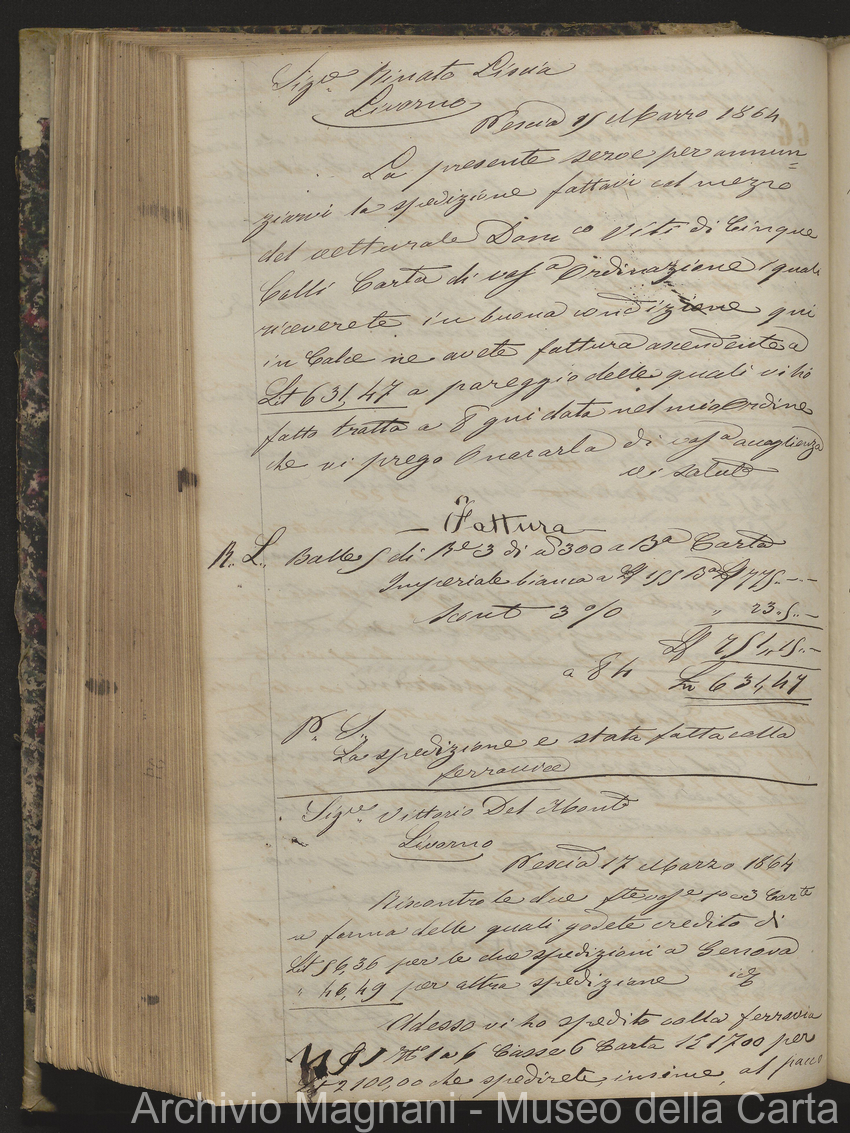 Sigre Ninato Liscia
Livorno
Pescia 15 Marzo 1864
La presente serve per annun=
ziarvi la spedizione fattavi col mezzo
del vetturale Domco Viti di Cinque
Colli Carta di vosa Ordinazione i quali
riceverete in buona condizione qui
in Calce ne avete fattura ascendente a
Lit 631,47 a pareggio delle quali vi ho
fatto tratta a 8 gni data nel mio Ordine
che vi prego Onorarla di vosa accoglienza
vi saluto
— Fattura —
R.. L.. Balle 5 di Re 3 di a 300 a Ba Carta
Imperiale bianca a 155 Ba 775.–.–
Scont 3 % „ 23„5„–
751„15„–
a 84 Ln 631,47
P.. S..
La spedizione e stata fatta colla
ferrovia
Sigre Vittorio Del Monte
Livorno
Pescia 17 Marzo 1864
Riscontro le due
a forma delle quali godete credito di
Lit 56,36 per le due spedizioni a Genova
„ 46,49 per altra spedizione
Adesso vi ho spedito colla ferrovia
No 1 a 6 Casse 6 Carta 1700 per
2100,00 che spedirete insieme, al pacco
Archivio Magnani - Museo della Carta